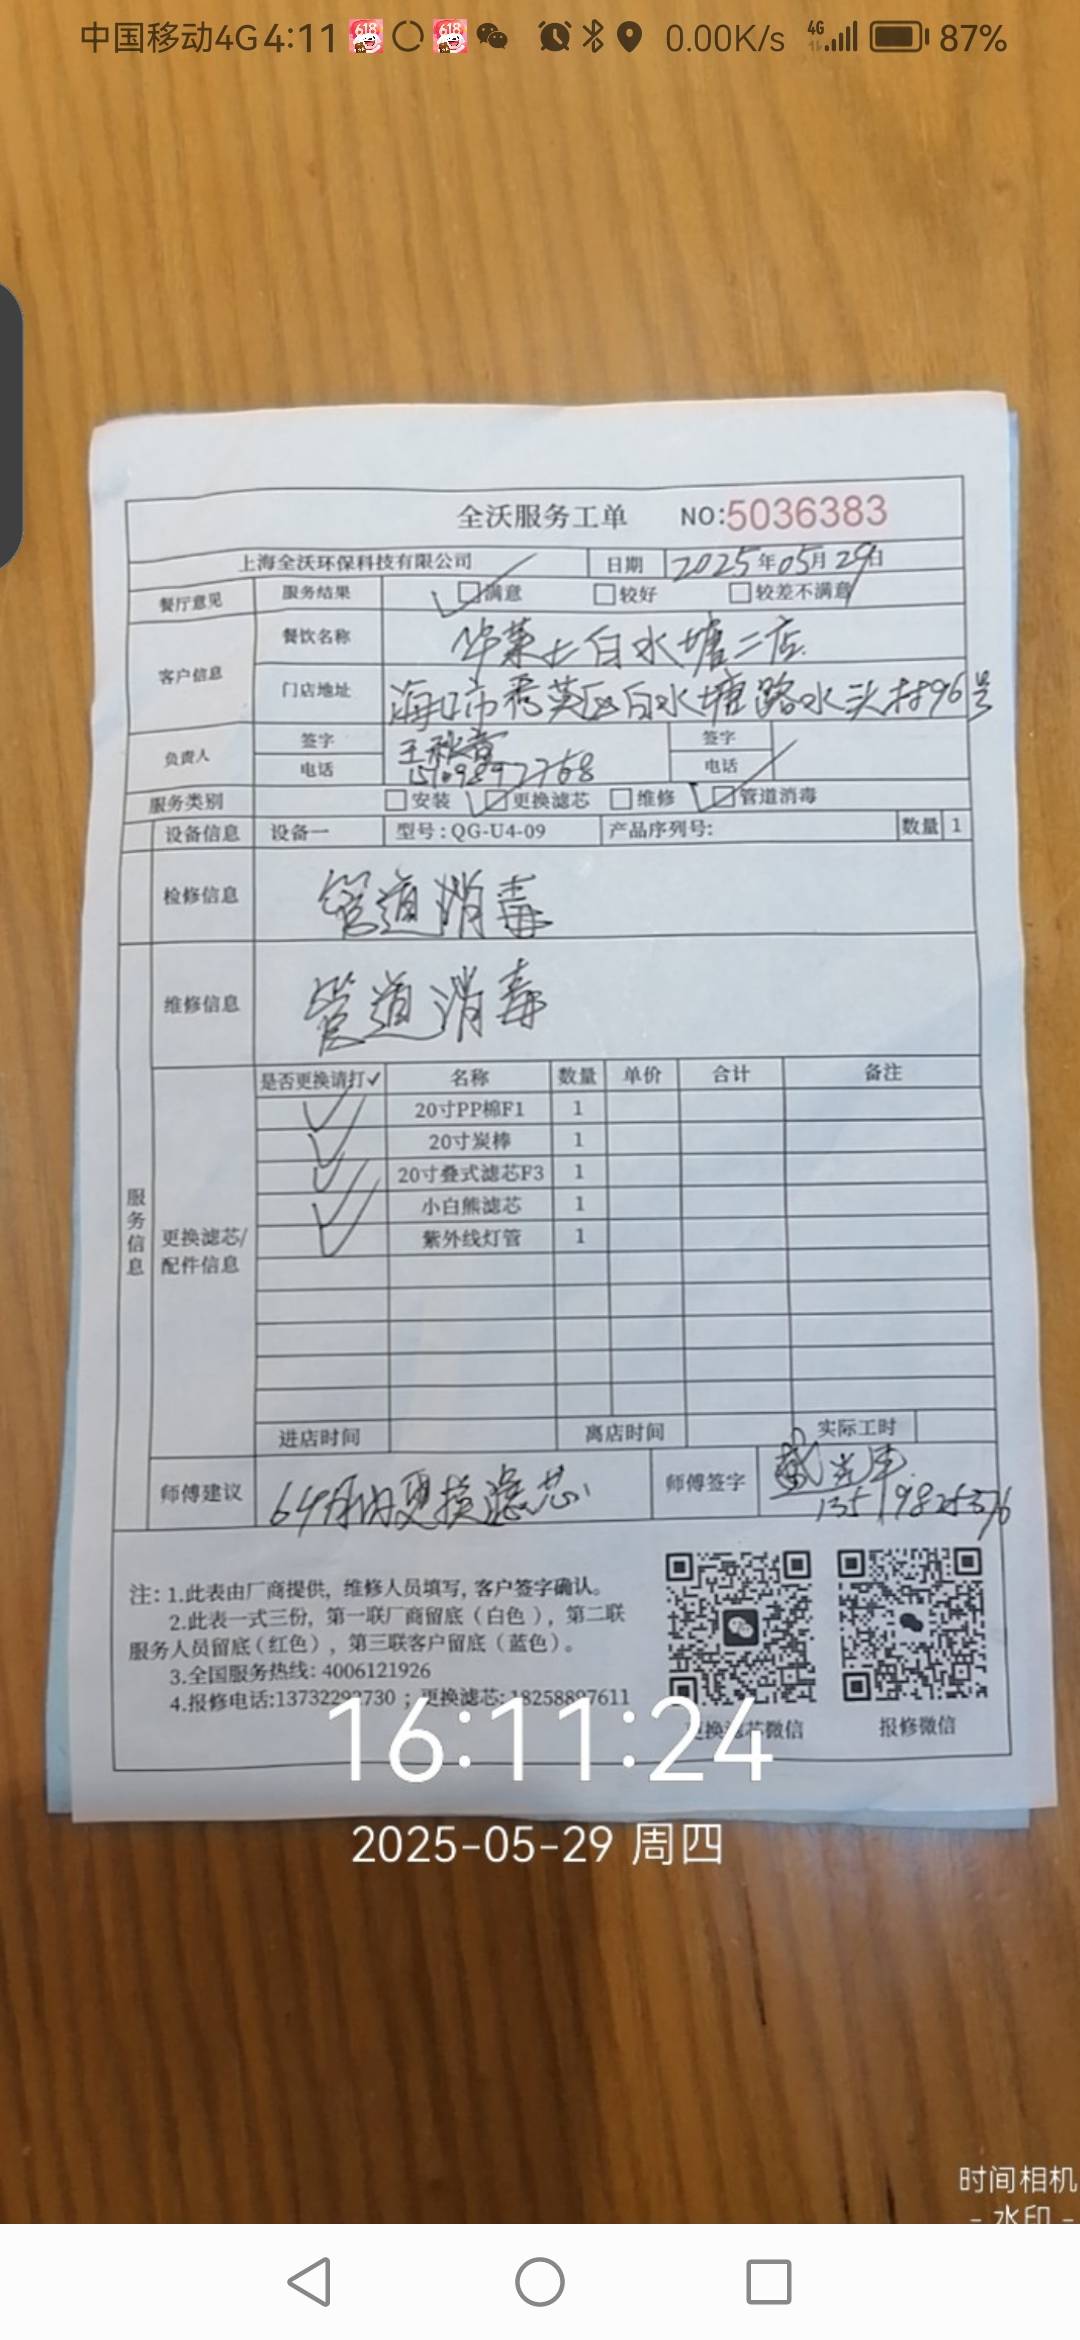 中国移动4G 4:11 618 618 0.00K/s 4G 87%
全沃服务工单 NO:5036383
上海全沃环保科技有限公司 日期 2025年05月29日
餐厅意见 服务结果 满意 较好 较差不满意
客户信息 餐饮名称 华莱士白水塘二店
门店地址 海口市秀英区白水塘路水头村96号
负责人 签字 签字
电话 电话
服务类别 安装 更换滤芯 维修 管道消毒
设备信息 设备一 型号:QG-U4-09 产品序列号: 数量 1
检修信息 管道消毒
维修信息 管道消毒
服务信息
更换滤芯/配件信息
是否更换请打✓ 名称 数量 单价 合计 备注
✓ 20寸PP棉F1 1
✓ 20寸炭棒 1
✓ 20寸叠式滤芯F3 1
✓ 小白熊滤芯 1
✓ 紫外线灯管 1
进店时间 离店时间 实际工时
师傅建议 更换滤芯 师傅签字
注: 1.此表由厂商提供, 维修人员填写, 客户签字确认。
2.此表一式三份, 第一联厂商留底(白色), 第二联
服务人员留底(红色), 第三联客户留底(蓝色)。
3.全国服务热线: 4006121926
4.报修电话:13732292730 ; 更换滤芯: 18258897611
更换滤芯微信 报修微信
16:11:24
2025-05-29 周四
时间相机
- 水印 -